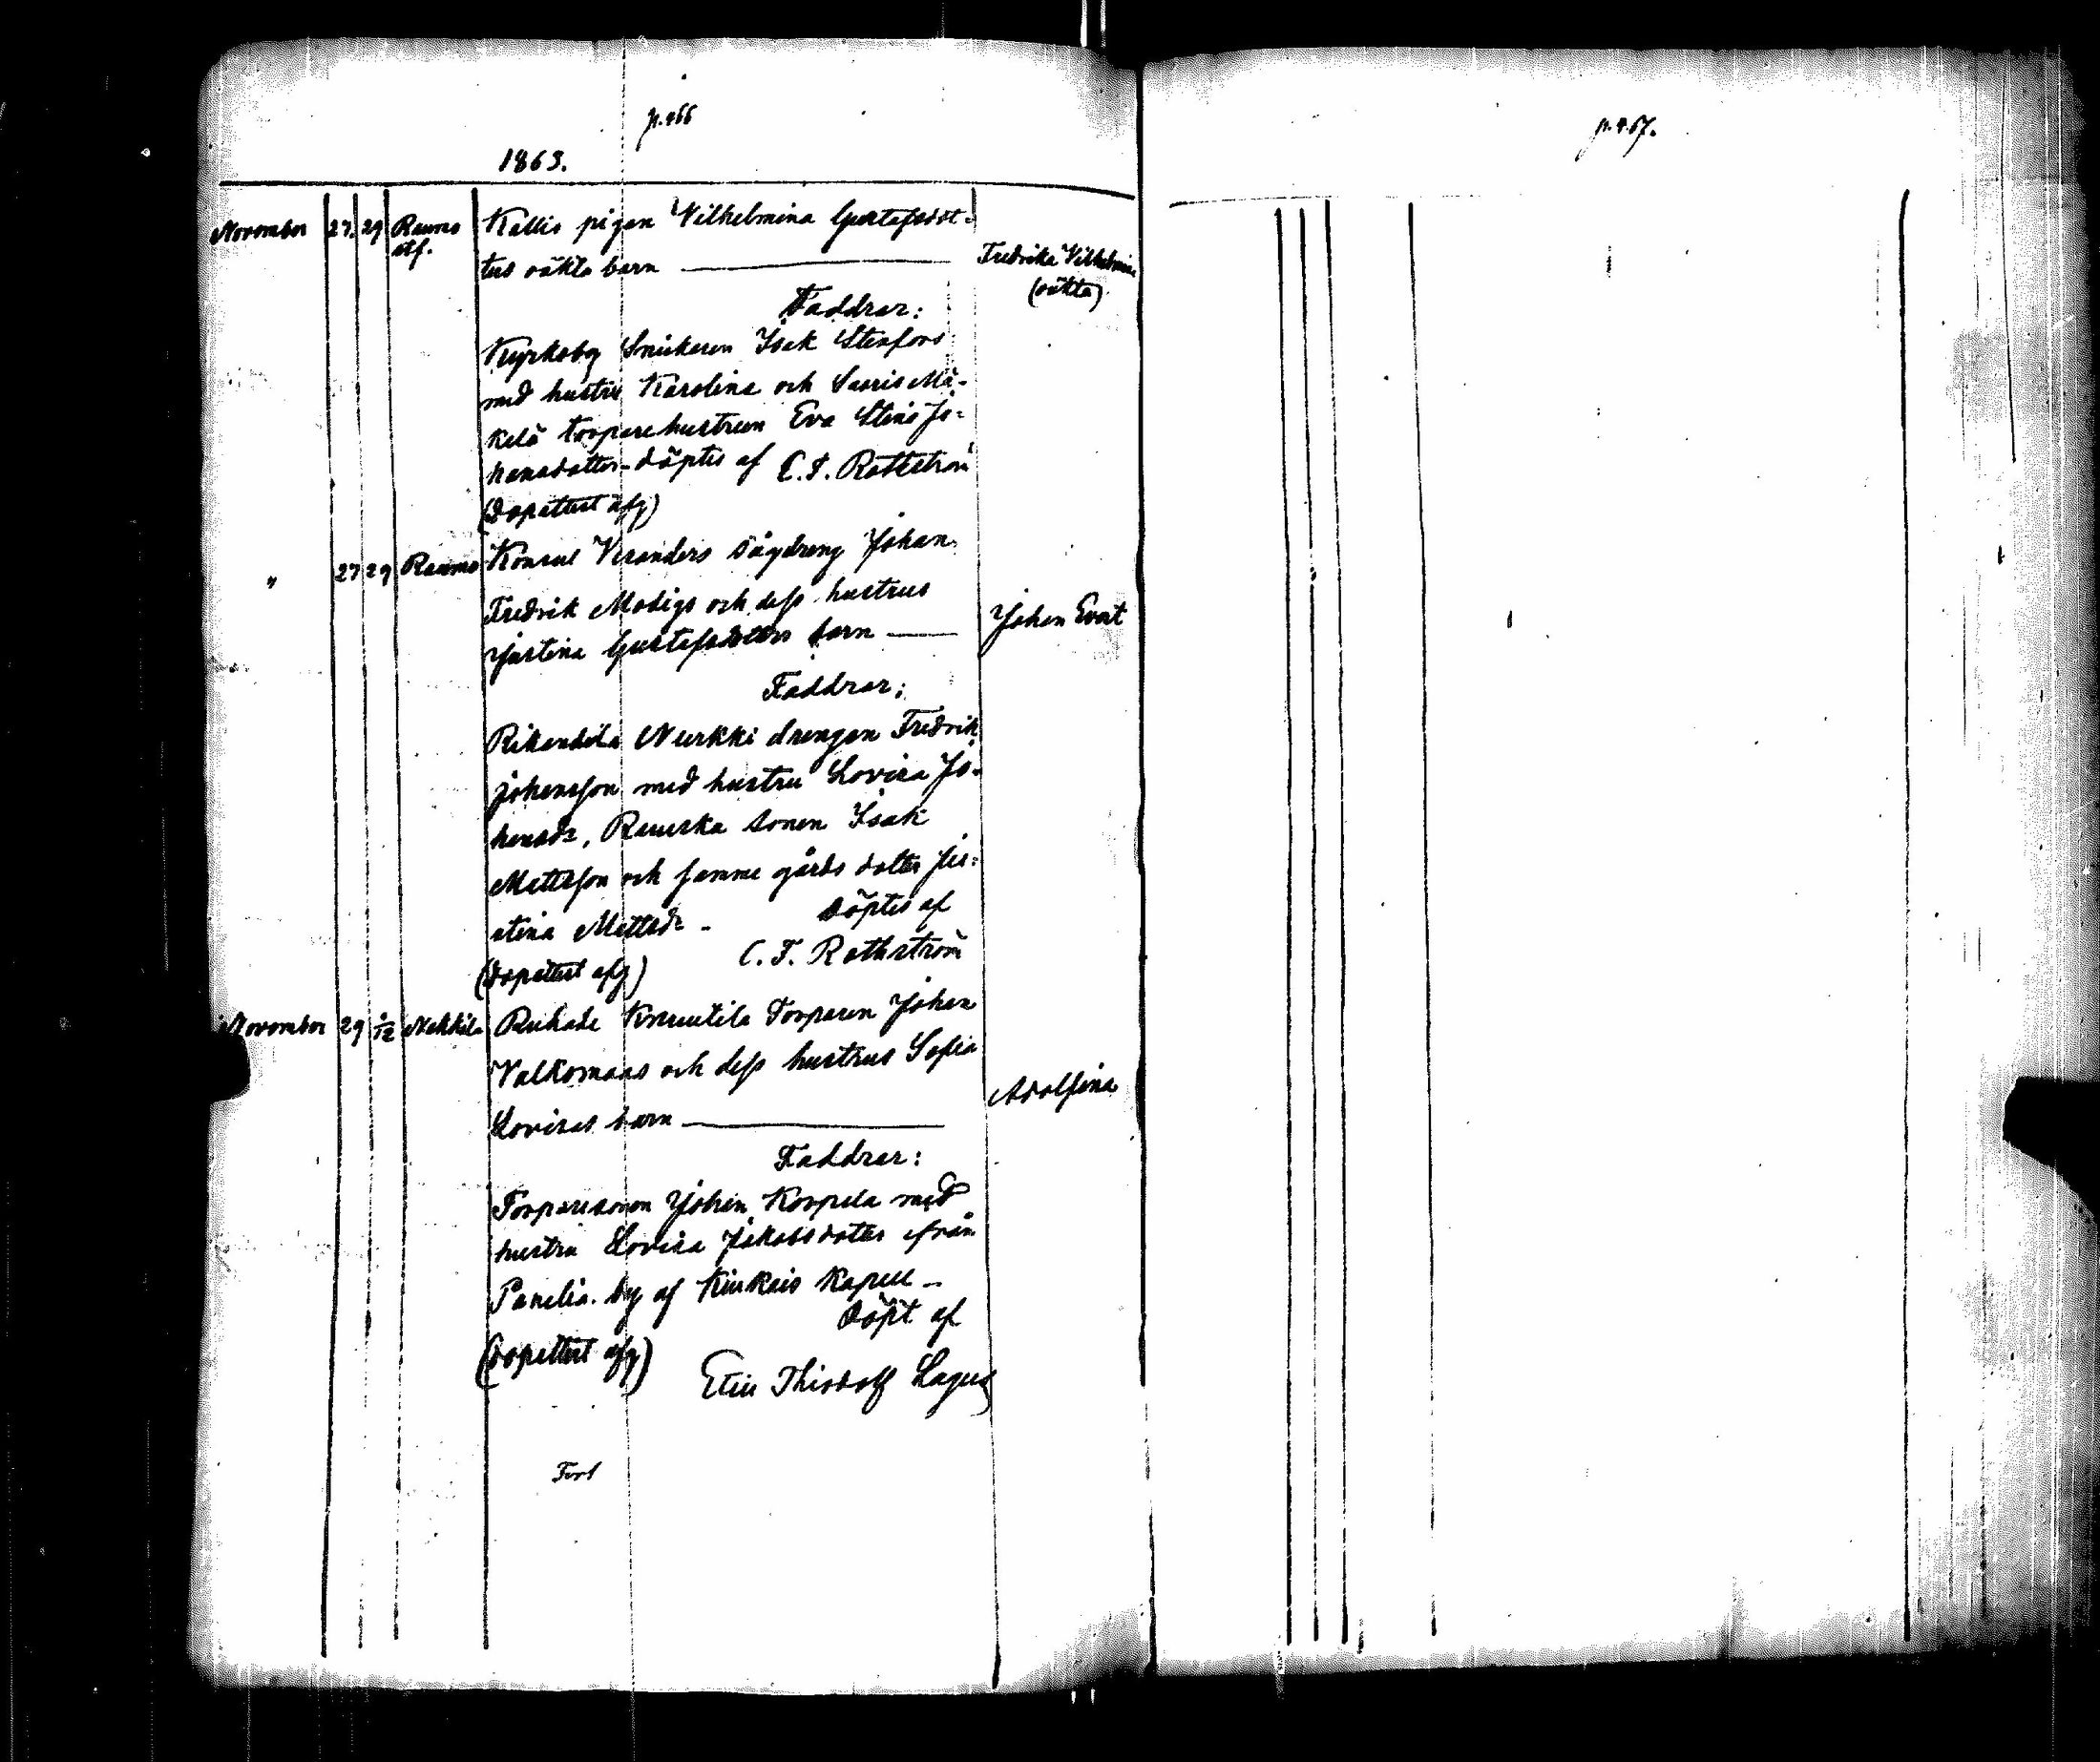 p. 466
1863.
November 27. 29 Raumo Kallis pigan Vilhelmina Gustafsdot-
stf. ters oäkta barn — Fredrika Vilhelmina
(oäkta)
Faddrar:
Kyrkoby Snickaren Isak Stenfors
med hustru Karolina och Suoris Mä-
kelä torparehustrun Eva Stina Jo-
hansdotter - döptes af C. F. Rothström
(dopattest afg)
" 27 29 Raumo Konsul Veranders sågdreng Johan
Fredrik Modigs och dess hustrus
Justina Gustafsdotters barn — Johan Evert
Faddrar:
Rikantila Nurkki drengen Fredrik
Johansson med hustru Lovisa Jo-
hansdr, Rauska sonen Isak
Mattsson och samma gårds dotter Jus-
tina Mattsdr -
döptes af
(dopattest afg) C. F. Rothström
November 29 1/12 Nakkila Ruhade Knuutila Torparen Johan
Valkomaas och dess hustrus Sofia
Lovisas barn — Adolfina
Faddrar:
Torparesonen Johan Korpela med
hustru Lovisa Jakobsdotter från
Panelia by af Kiukais Kapell -
döpt af
(dopattest afg) Elis Thiodolf Lagus
Fort
p. 467.